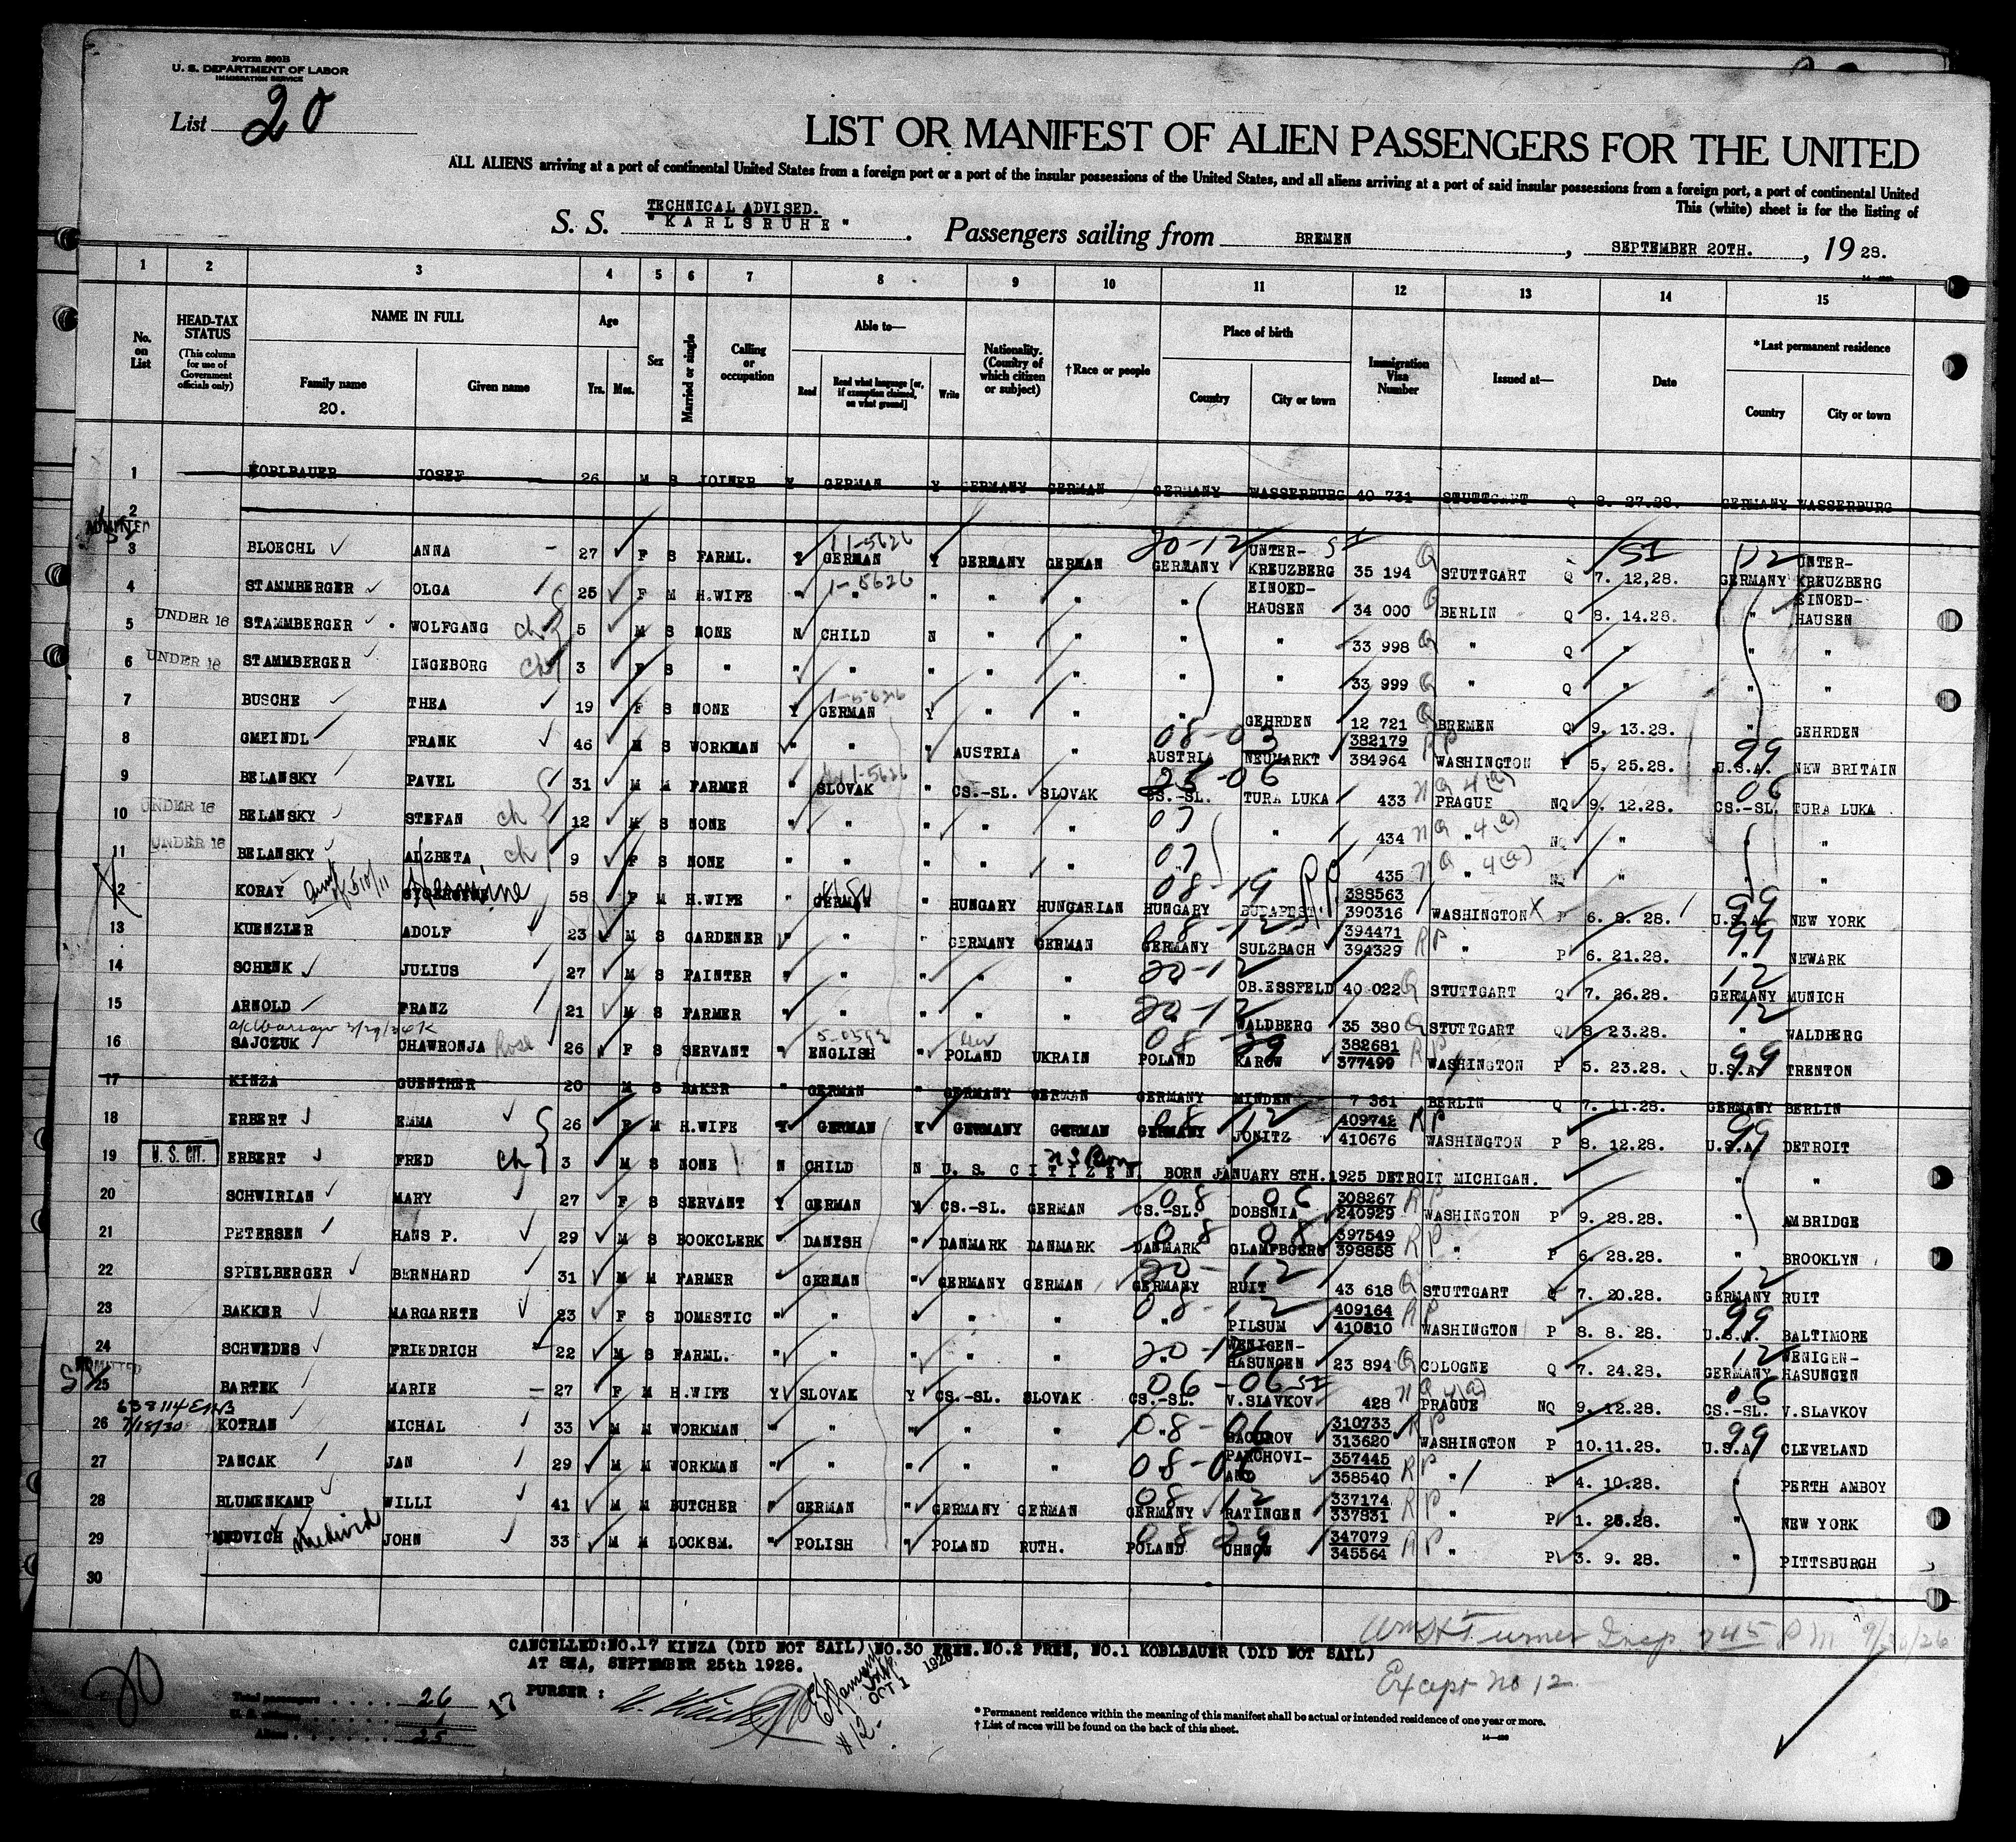 Form 500B
U. S. DEPARTMENT OF LABOR
IMMIGRATION SERVICE
List 20
LIST OR MANIFEST OF ALIEN PASSENGERS FOR THE UNITED
ALL ALIENS arriving at a port of continental United States from a foreign port or a port of the insular possessions of the United States, and all aliens arriving at a port of said insular possessions from a foreign port, a port of continental United
This (white) sheet is for the listing of
TECHNICAL ADVISED.
S. S. "KARLSRUHE". Passengers sailing from BREMEN, SEPTEMBER 20TH., 1928.
1 2 3 4 5 6 7 8 9 10 11 12 13 14 15
No. on List
HEAD-TAX STATUS
(This column for use of Government officials only)
NAME IN FULL
Family name
20.
Given name
Age
Yrs. Mos.
Sex
Married or single
Calling or occupation
Able to—
Read
Read what language [or, if exemption claimed, on what ground]
Write
Nationality. (Country of which citizen or subject)
†Race or people
Place of birth
Country City or town
Immigration Visa Number
Issued at—
Date
*Last permanent residence
Country City or town
1 KOBLBAUER JOSEF 26 M S JOINER Y GERMAN Y GERMANY GERMAN GERMANY WASSERBURG 40 731 STUTTGART Q 8. 27.28. GERMANY WASSERBURG
2
ADMITTED
3 BLOECHL ANNA 27 F S FARML. Y GERMAN 11-5626 Y GERMANY GERMAN 20-12 GERMANY UNTER-KREUZBERG SI 35 194 Q STUTTGART Q 7. 12,28. SI 12 GERMANY UNTER-KREUZBERG
4 STAMMBERGER OLGA 25 F M H.WIFE " " 1-5626 " " " " EINOED-HAUSEN 34 000 Q BERLIN Q 8. 14.28. " EINOED-HAUSEN
5 UNDER 16 STAMMBERGER WOLFGANG ch 5 M S NONE N CHILD N " " " " 33 998 Q " Q " " "
6 UNDER 16 STAMMBERGER INGEBORG ch 3 F S " " " " " " " " 33 999 Q " Q " " "
7 BUSCHE THEA 19 F S NONE Y GERMAN 1-5626 Y " " " GEHRDEN 12 721 Q BREMEN Q 9. 13.28. " GEHRDEN
8 GMEINDL FRANK 46 M S WORKMAN " " " AUSTRIA " 08-03 AUSTRIA NEUMARKT 382179 384964 RP WASHINGTON P 5. 25.28. 99 U.S.A. NEW BRITAIN
9 BELANSKY PAVEL 31 M M FARMER " SLOVAK 1-5626 " CS.-SL. SLOVAK 25-06 CS.-SL. TURA LUKA 433 NQ 4(a) PRAGUE NQ 9. 12.28. 06 CS.-SL. TURA LUKA
10 UNDER 16 BELANSKY STEFAN ch 12 M S NONE " " " " " 07 " 434 NQ " 4(a) NQ " " "
11 UNDER 16 BELANSKY ALZBETA ch 9 F S NONE " " " " " 07 " 435 NQ " 4(a) NQ " " "
12 KORAY Hermine 58 F M H.WIFE " GERMAN " HUNGARY HUNGARIAN 08-19 HUNGARY BUDAPEST R.P. 388563 390316 WASHINGTON X P 6. 8. 28. 99 U.S.A. NEW YORK
13 KUENZLER ADOLF 23 M S GARDENER " " " GERMANY GERMAN 08-12 GERMANY SULZBACH 394471 394329 RP " P 6. 21.28. 99 " NEWARK
14 SCHENK JULIUS 27 M S PAINTER " " " " " 20-12 " OB.ESSFELD 40 022 Q STUTTGART Q 7. 26.28. 12 GERMANY MUNICH
15 ARNOLD FRANZ 21 M S FARMER " " " " " 20-12 " WALDBERG 35 380 Q STUTTGART Q 8. 23.28. 12 " WALDBERG
16 SAJCZUK CHAWRONJA Rose 26 F S SERVANT " ENGLISH " POLAND UKRAIN 08-29 POLAND KAROW 382681 377499 RP WASHINGTON P 5. 23.28. 99 U.S.A. TRENTON
17 KINZA GUENTHER 20 M S BAKER " GERMAN " GERMANY GERMAN GERMANY MINDEN 7 361 BERLIN Q 7. 11.28. GERMANY BERLIN
18 ERBERT EMMA 26 F M H.WIFE Y GERMAN Y GERMANY GERMAN 08 12 GERMANY JONITZ 409742 410676 RP WASHINGTON P 8. 12.28. 99 U.S.A. DETROIT
19 U. S. CIT. ERBERT FRED ch 3 M S NONE N CHILD N U. S. CITIZEN. BORN JANUARY 8TH.1925 DETROIT MICHIGAN. " "
20 SCHWIRIAN MARY 27 F S SERVANT Y GERMAN Y CS.-SL. GERMAN 08 06 CS.-SL. DOBSNIA 308267 240929 RP WASHINGTON P 9. 28.28. " AMBRIDGE
21 PETERSEN HANS P. 29 M S BOOKCLERK " DANISH " DANMARK DANMARK 08 08 DANMARK GLAMFBGERG 397549 398858 RP " P 6. 28.28. " BROOKLYN
22 SPIELBERGER BERNHARD 31 M M FARMER " GERMAN " GERMANY GERMAN 20-12 GERMANY RUIT 43 618 Q STUTTGART Q 7. 20.28. 12 GERMANY RUIT
23 BAKKER MARGARETE 23 F S DOMESTIC " " " " " 08-12 " PILSUM 409164 410810 RP WASHINGTON P 8. 8. 28. 99 U.S.A. BALTIMORE
24 SCHWEDES FRIEDRICH 22 M S FARML. " " " " " 20-12 " WENIGEN-HASUNGEN 23 894 Q COLOGNE Q 7. 24.28. 12 GERMANY WENIGEN-HASUNGEN
ADMITTED
25 BARTEK MARIE 27 F M H.WIFE Y SLOVAK Y CS.-SL. SLOVAK 06-06 SI CS.-SL. V.SLAVKOV 428 NQ 4(a) PRAGUE NQ 9. 12.28. 06 CS.-SL. V.SLAVKOV
7/18/30
26 KOTRAN MICHAL 33 M M WORKMAN " " " " " 08-06 " 310733 313620 RP WASHINGTON P 10.11.28. 99 U.S.A. CLEVELAND
27 PANCAK JAN 29 M M WORKMAN " " " " " 08- " 357445 358540 RP " P 4. 10.28. " PERTH AMBOY
28 BLUMENKAMP WILLI 41 M M BUTCHER " GERMAN " GERMANY GERMAN 08 12 GERMANY RATINGEN 337174 337831 RP " P 1. 26.28. " NEW YORK
29 MEDVICH JOHN 33 M M LOCKSM. " POLISH " POLAND RUTH. 08 29 POLAND 347079 345564 RP " P 3. 9. 28. " PITTSBURGH
30
CANCELLED:NO.17 KINZA (DID NOT SAIL) NO.30 FREE.NO.2 FREE, NO.1 KOBLBAUER (DID NOT SAIL)
AT SEA, SEPTEMBER 25th 1928.
PURSER :
Turner Insp 745 PM
Except no 12
20
Total passengers . . . . 26
U. S. citizens . . . . 1
Aliens . . . . . . 25
17
OCT 1 1928
#12-
* Permanent residence within the meaning of this manifest shall be actual or intended residence of one year or more.
† List of races will be found on the back of this sheet.